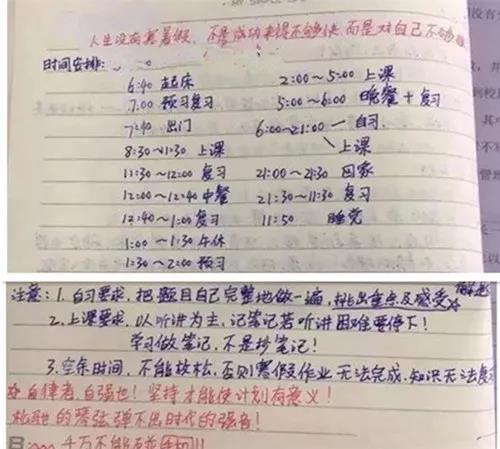 人生没有寒暑假,不是成功来得不够快,而是对自己不够狠
时间安排:
6:40 起床
7:00 预习复习
7:40 出门
8:30~11:30 上课
11:30~12:00 复习
12:00~12:40 中餐
12:40~1:00 复习
1:00~1:30 午休
1:30~2:00 预习
2:00~5:00 上课
5:00~6:00 晚餐+复习
6:00~21:00 自习
上课
21:00~21:30 回家
21:30~11:30 复习
11:50 睡觉
注意:1.自习要求,把题目自己完整地做一遍,挑出重点及感受
2.上课要求,以听讲为主,记笔记若听讲困难要停下!
学习做笔记,不是抄笔记!
3.空余时间,不能放松,否则寒假作业无法完成,知识无法复
自律者,自强也!坚持才能使计划有意义!
松弛的琴弦弹不出时代的强音!
千万不能玩手机!!